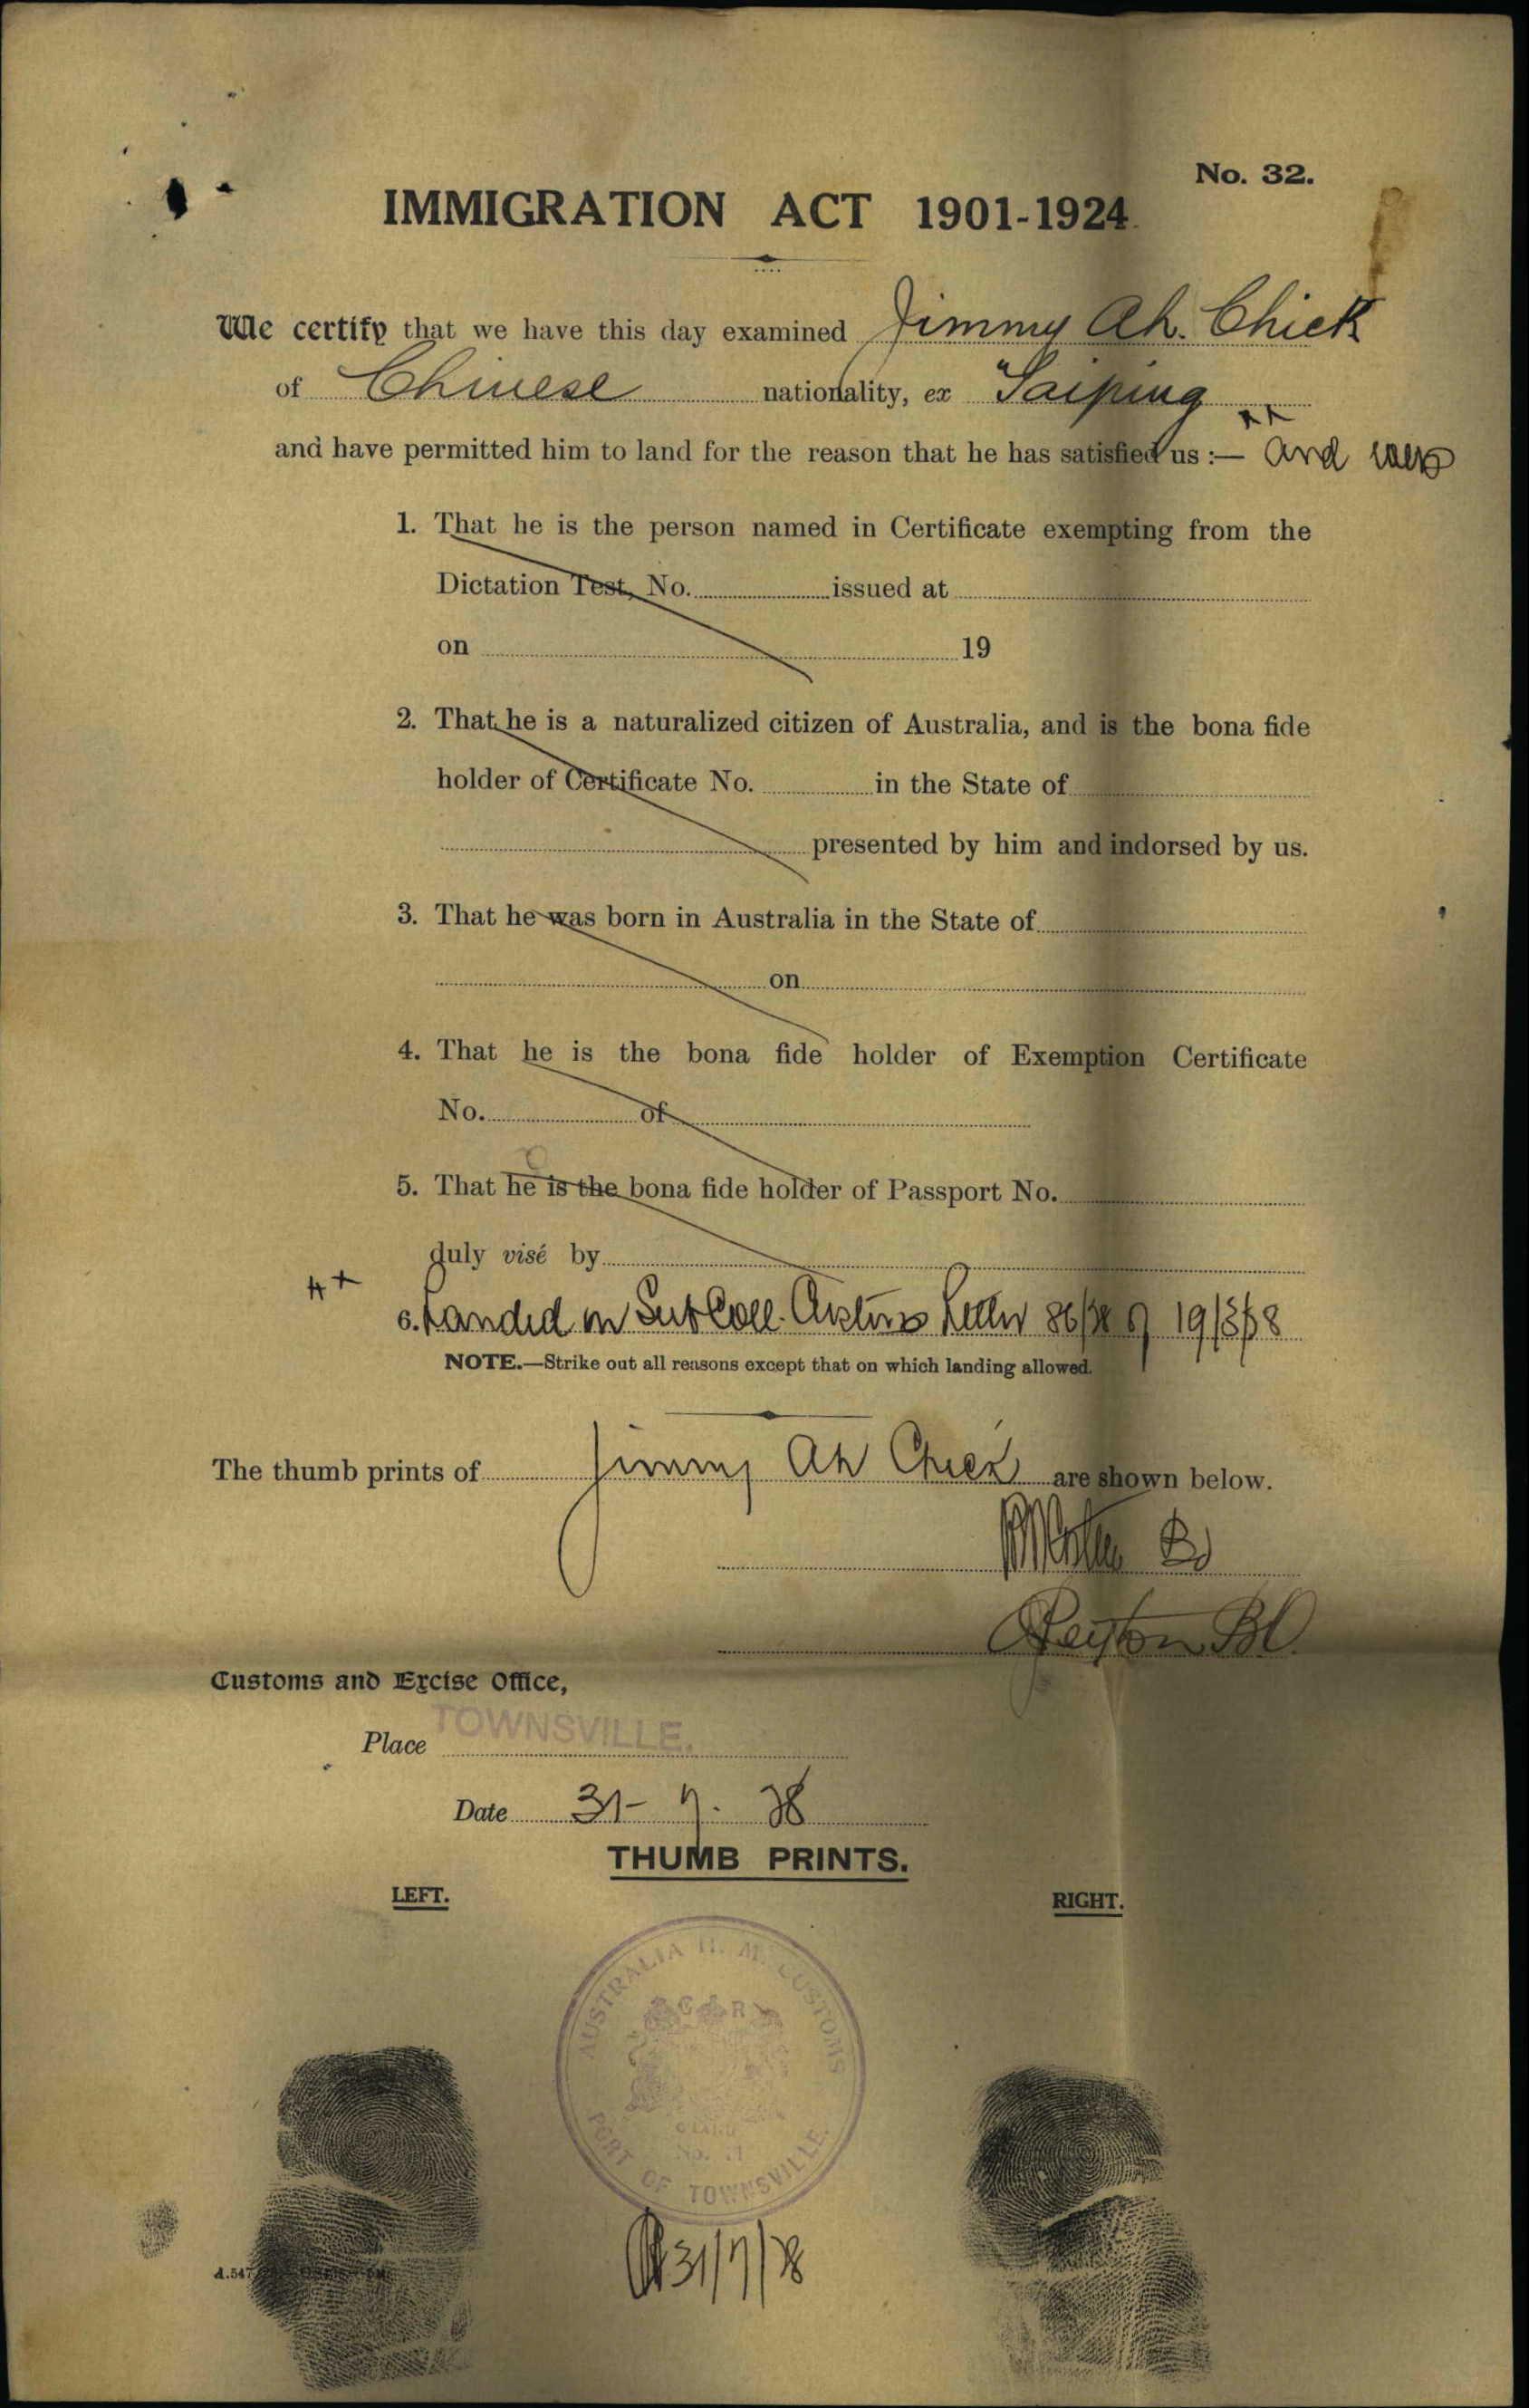 No. 32.
IMMIGRATION ACT 1901-1924.
We certify that we have this day examined Jimmy Ah. Chick
of Chinese nationality, ex "Taiping
and have permitted him to land for the reason that he has satisfied us :— and was
1. That he is the person named in Certificate exempting from the
Dictation Test, No. issued at
on 19
2. That he is a naturalized citizen of Australia, and is the bona fide
holder of Certificate No. in the State of
presented by him and indorsed by us.
3. That he was born in Australia in the State of
on
4. That he is the bona fide holder of Exemption Certificate
No. of
5. That he is the bona fide holder of Passport No.
duly visé by
6. Landed on Sub Coll. Letter 86/38 of 19/3/38
NOTE.—Strike out all reasons except that on which landing allowed.
The thumb prints of Jimmy Ah Chick are shown below.
Customs and Excise Office,
Place TOWNSVILLE.
Date 31-7.38
THUMB PRINTS.
LEFT. RIGHT.
AUSTRALIA H. M. CUSTOMS
G R
PORT OF TOWNSVILLE.
31/7/38
A.547